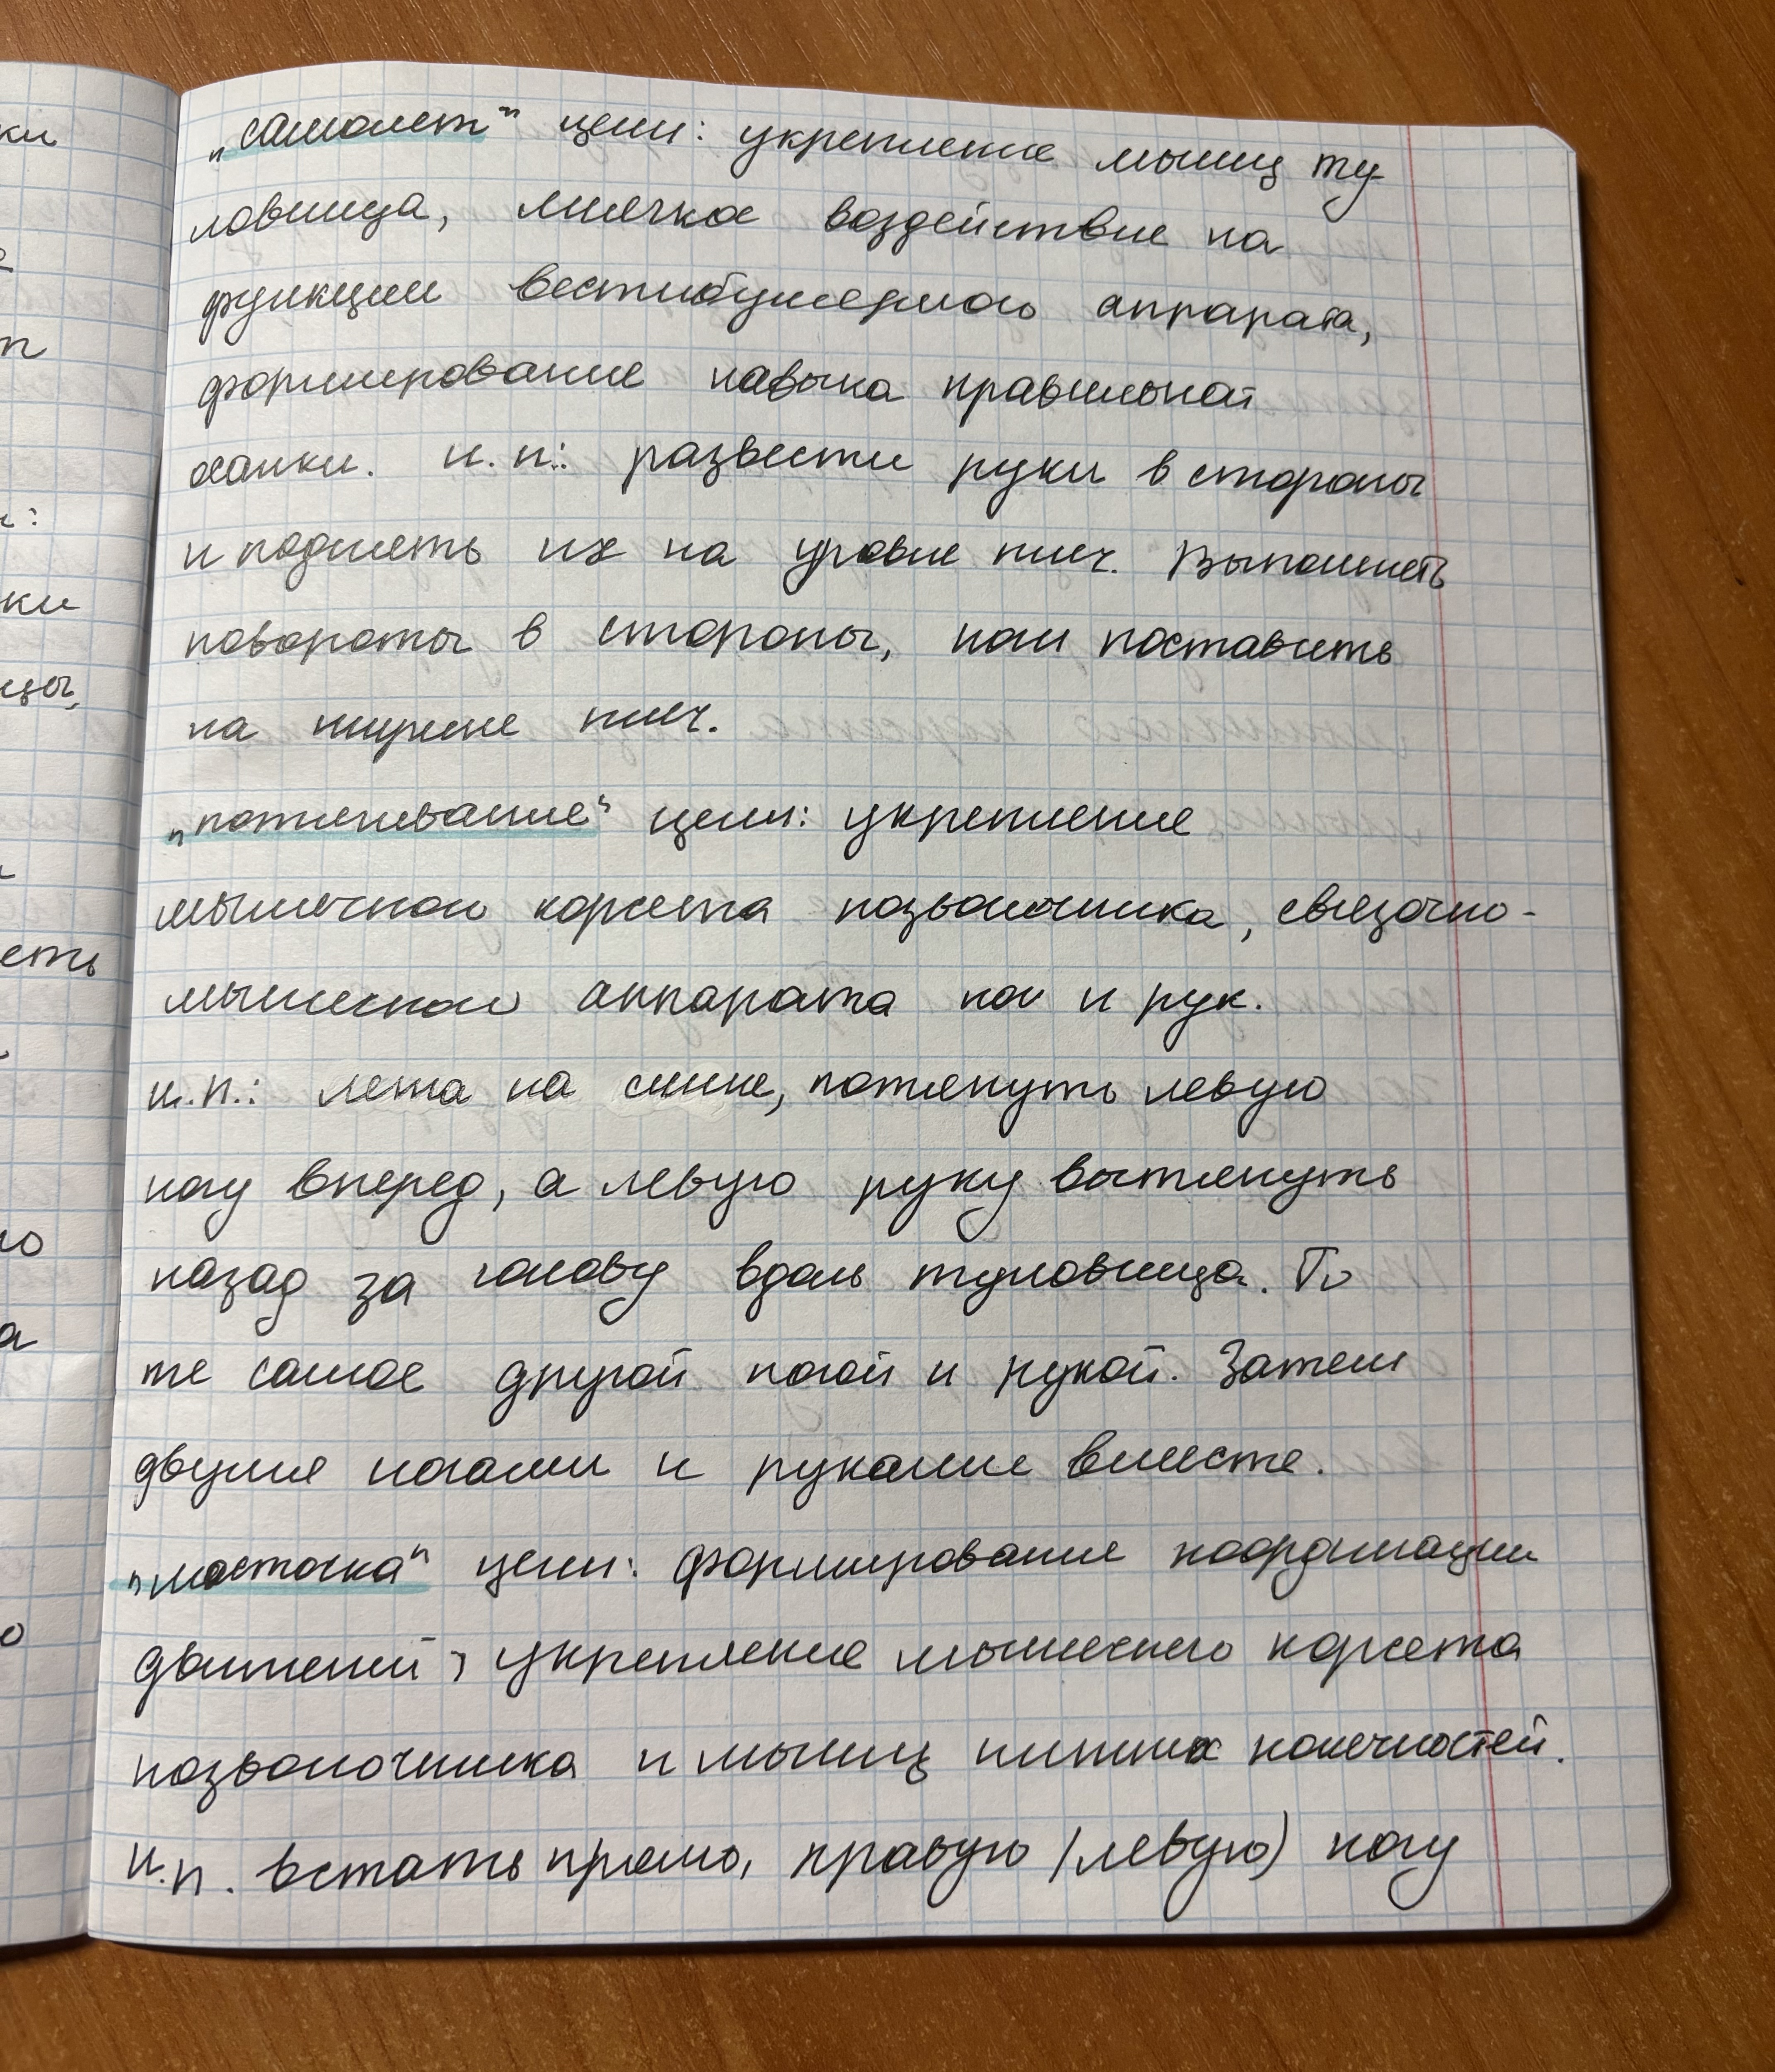 „самолет" цели: укрепление мышц ту-
ловища, мягкое воздействие на
функции вестибулярного аппарата,
формирование навыка правильной
осанки. и.п.: развести руки в стороны
и поднять их на уровне плеч. Выполнять
повороты в стороны, ноги поставить
на ширине плеч.
„потягивание" цели: укрепление
мышечного корсета позвоночника, связочно-
мышечного аппарата ног и рук.
и.п.: лежа на спине, потянуть левую
ногу вперед, а левую руку вытянуть
назад за голову вдоль туловища. То
же самое другой ногой и рукой. Затем
двумя ногами и руками вместе.
„ласточка" цели: формирование координации
движений, укрепление мышечного корсета
позвоночника и мышц нижних конечностей.
и.п. встать прямо, правую (левую) ногу